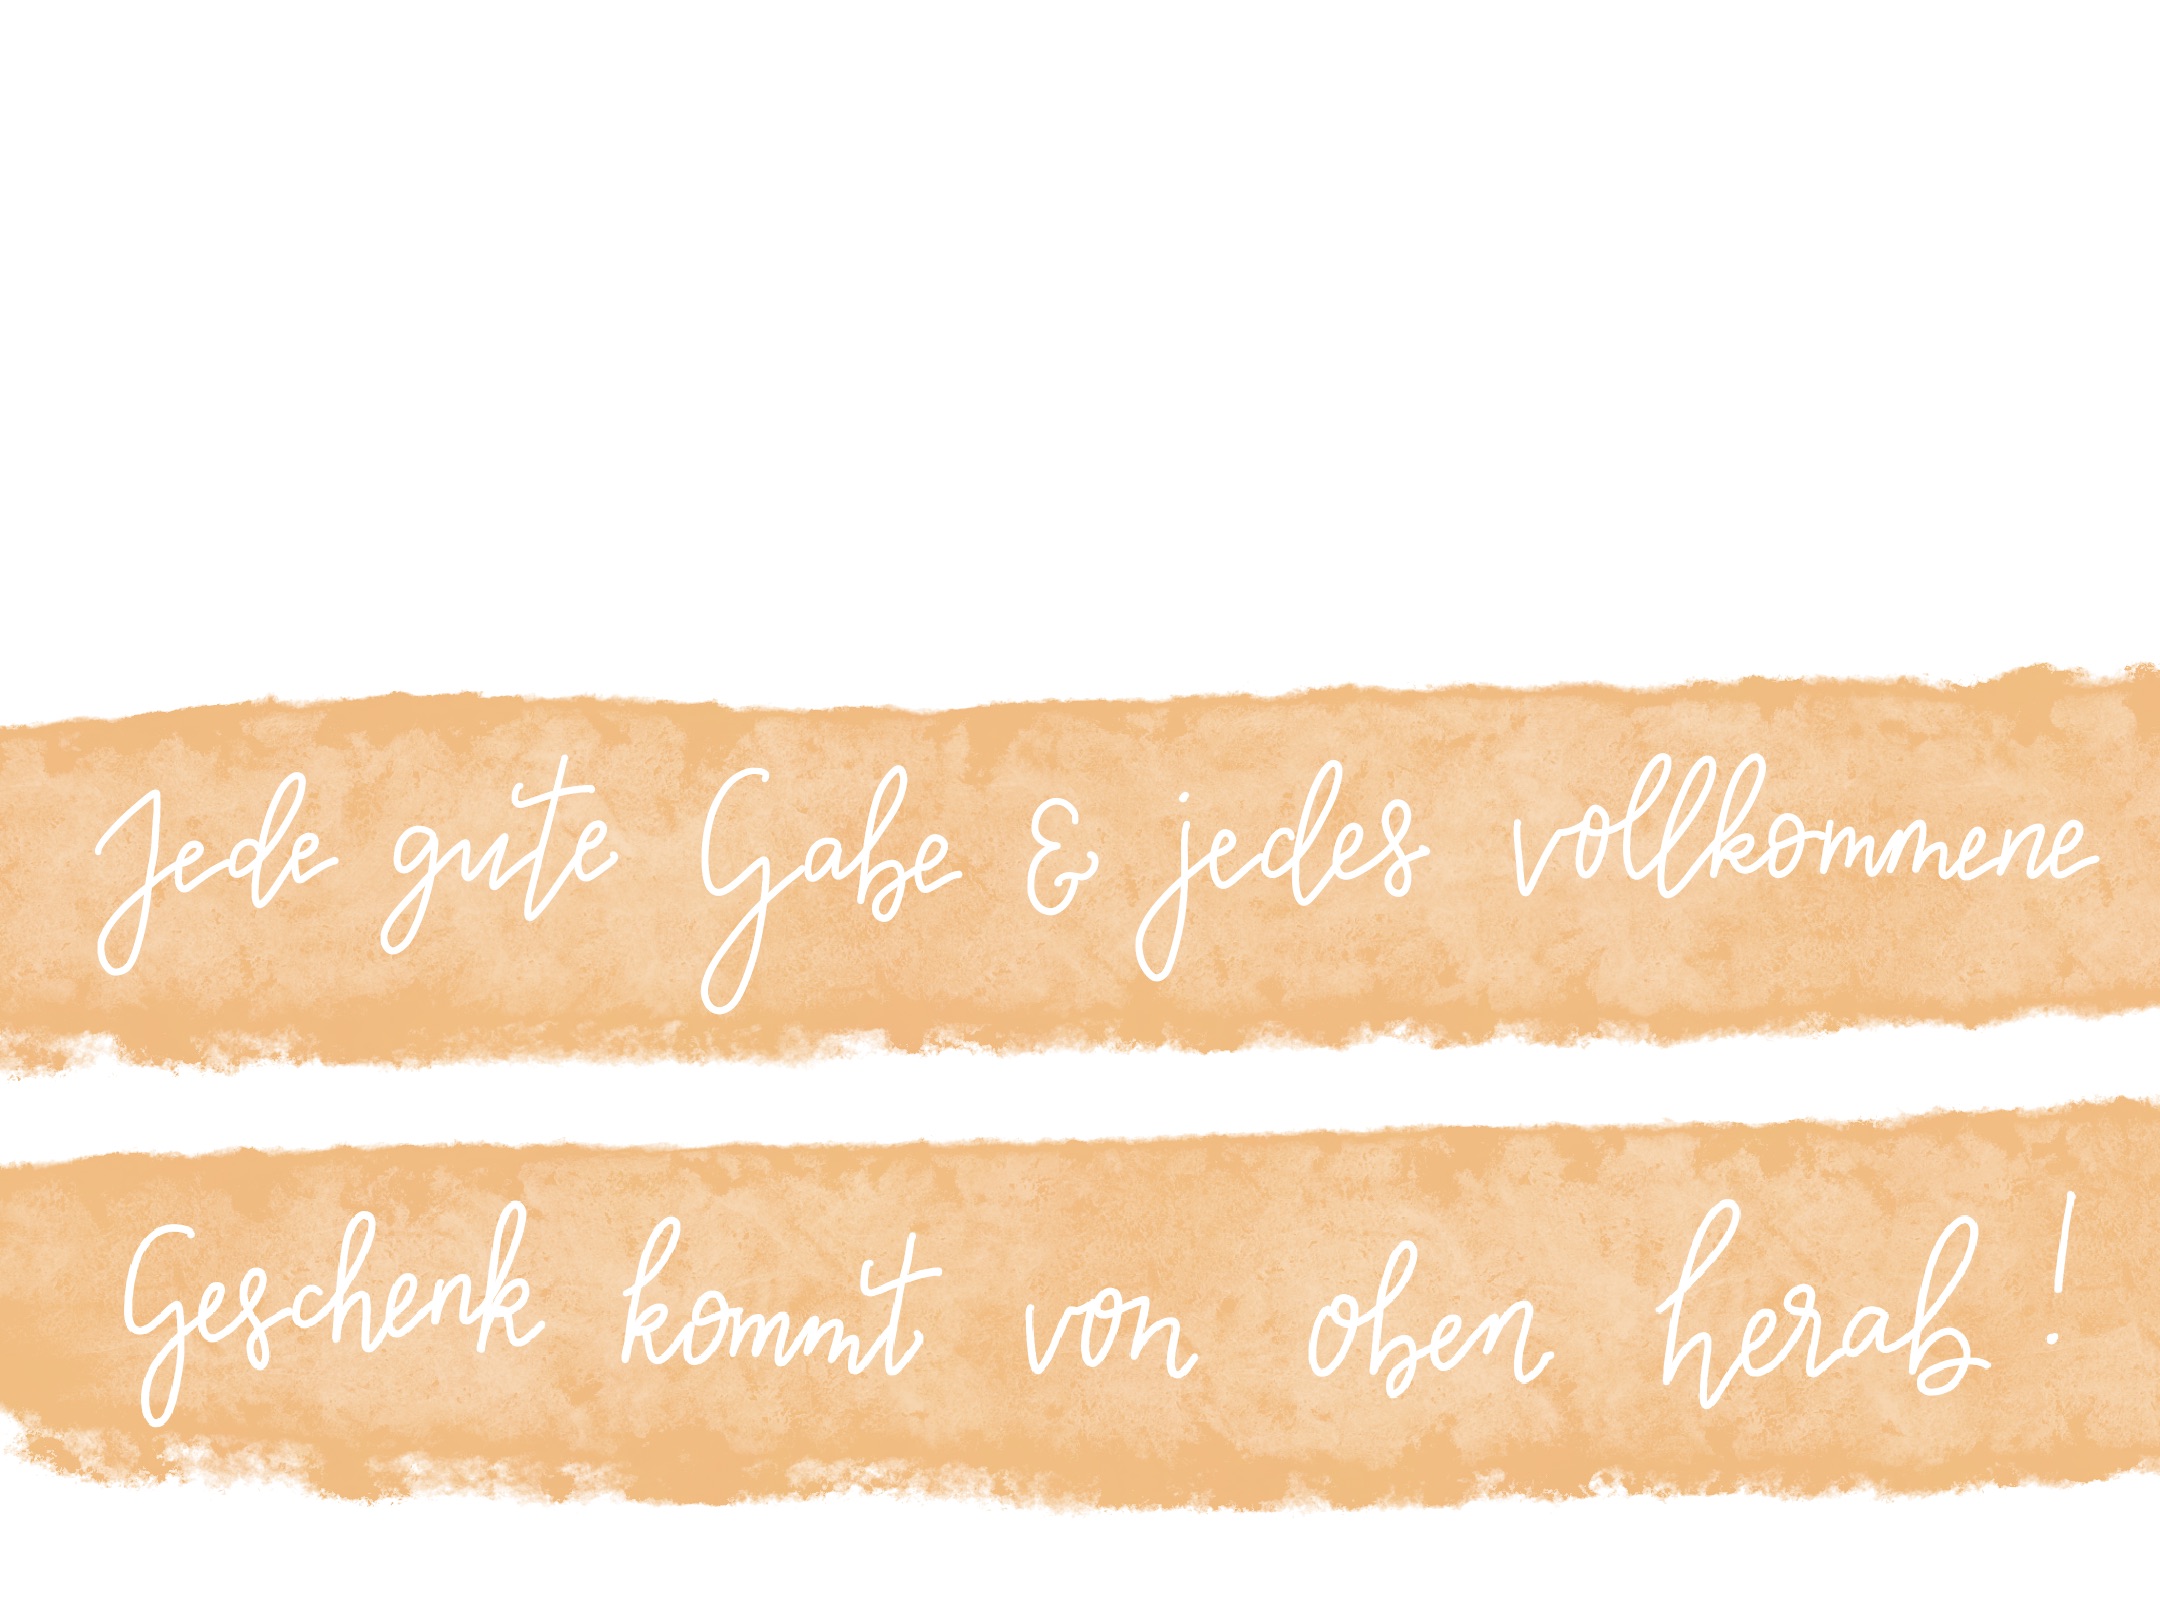 Jede gute Gabe & jedes vollkommene
Geschenk kommt von oben herab!